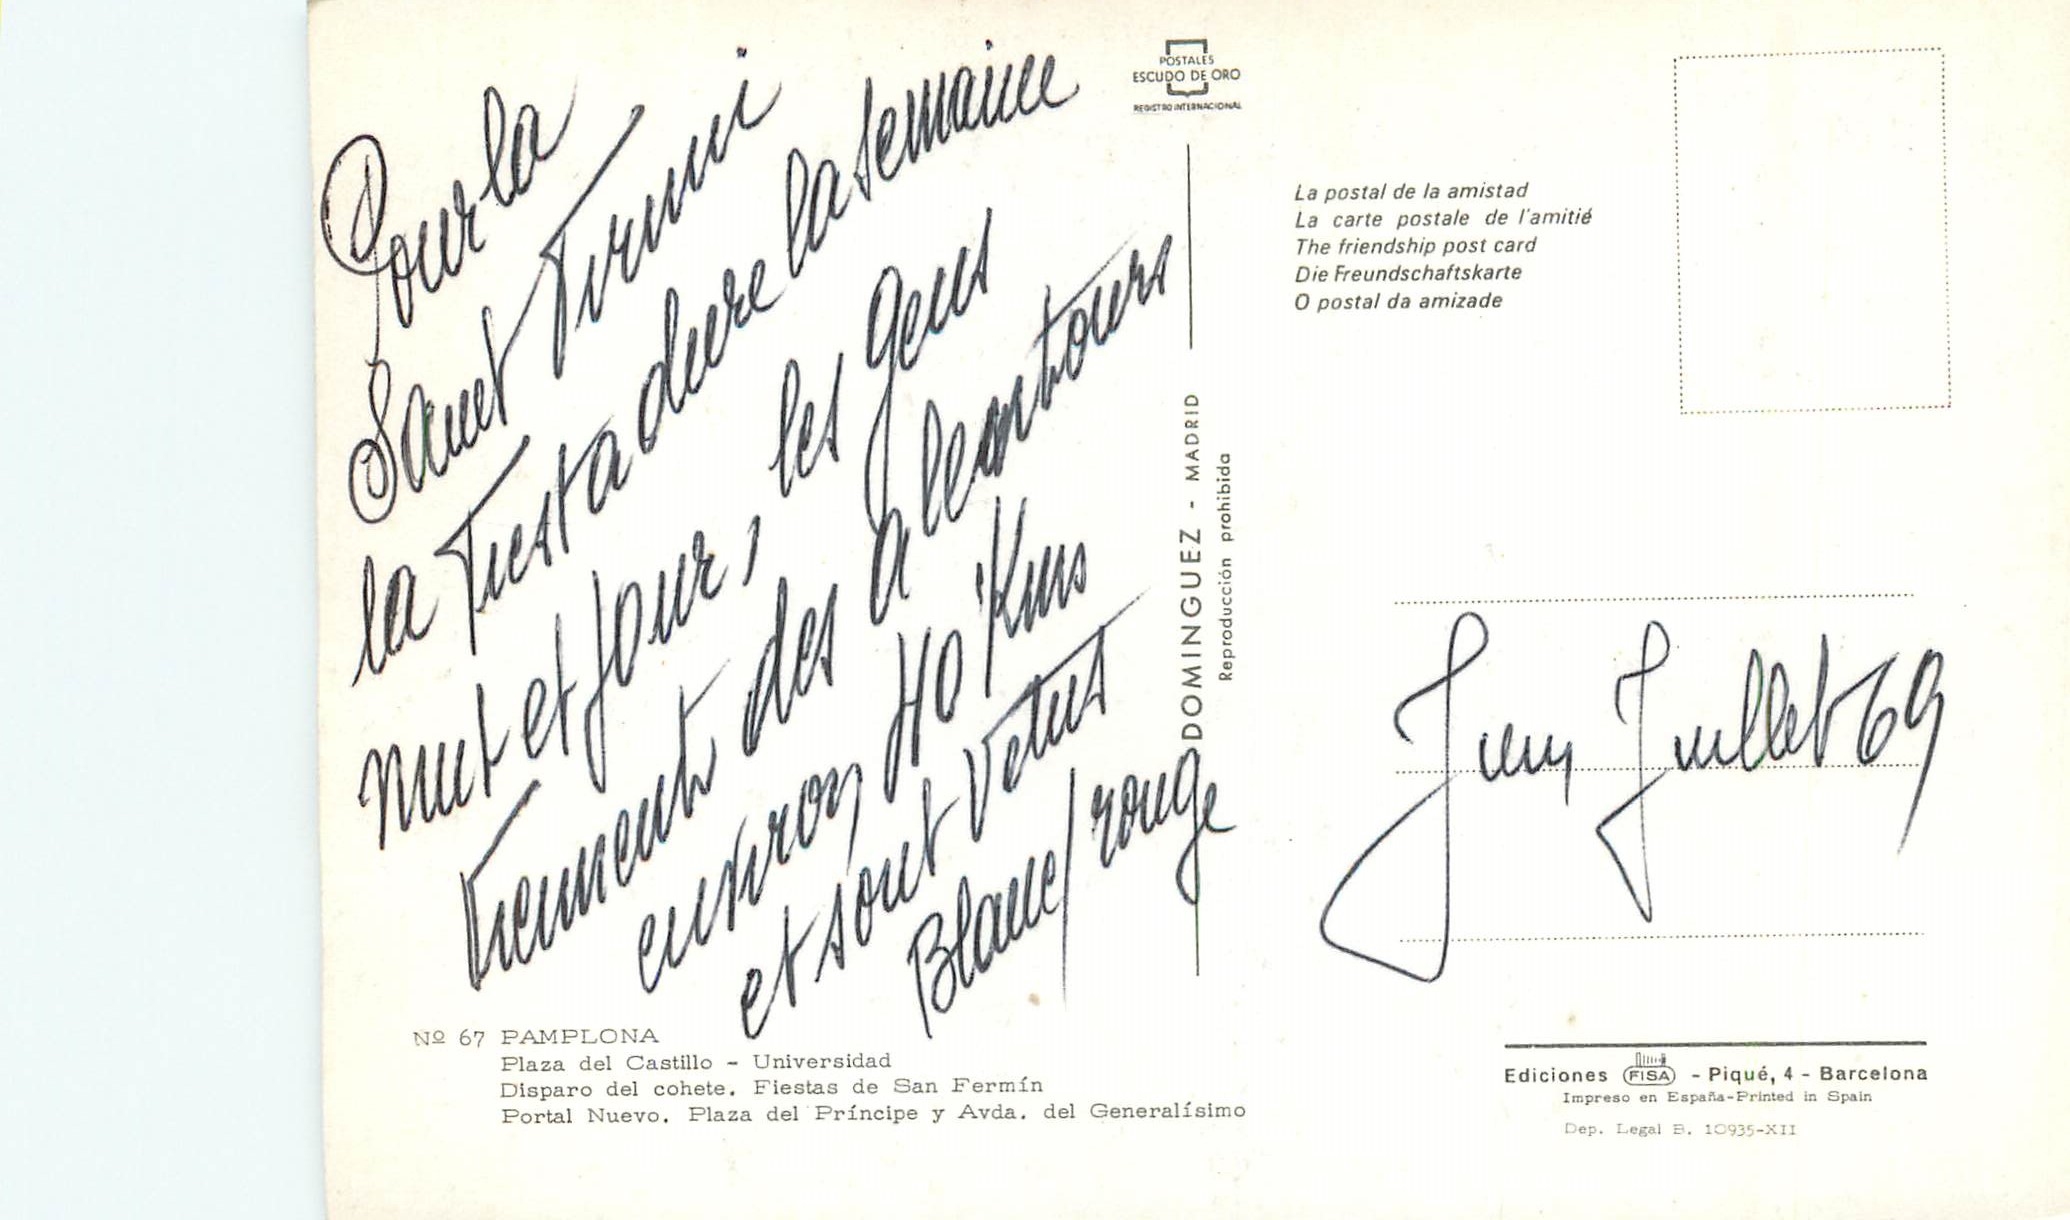 Pour la
Saint Firmin
la Fiesta dure la semaine
nuit et jour, les gens
viennent des alentours
environ 40 Kms
et sont vetus
Blanc/rouge
POSTALES
ESCUDO DE ORO
REGISTRO INTERNACIONAL
DOMINGUEZ - MADRID
Reproducción prohibida
Nº 67 PAMPLONA
Plaza del Castillo - Universidad
Disparo del cohete. Fiestas de San Fermín
Portal Nuevo. Plaza del Príncipe y Avda. del Generalísimo
La postal de la amistad
La carte postale de l'amitié
The friendship post card
Die Freundschaftskarte
O postal da amizade
Juin Juillet 69
Ediciones FISA - Piqué, 4 - Barcelona
Impreso en España-Printed in Spain
Dep. Legal B. 10935-XII